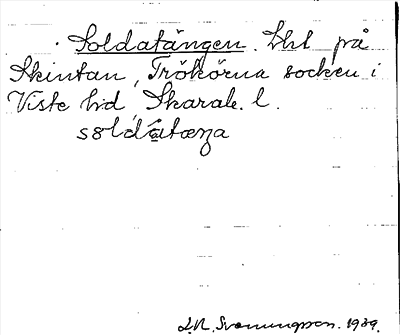 Soldatängen. Lht på
Skintan, Trökörna socken i
Viste hd, Skarab. l.
Svenningsson. 1939.